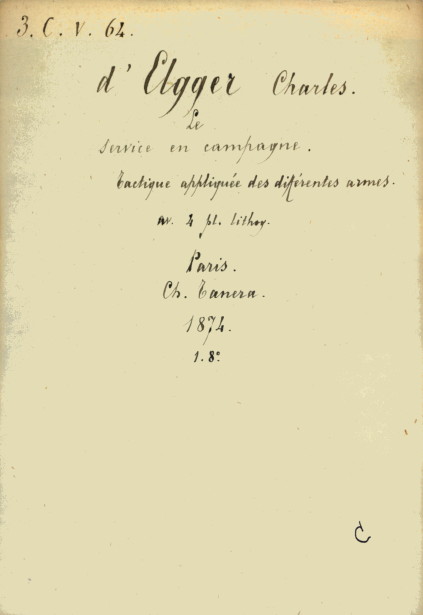 3. C. V. 64.
d' Elgger Charles.
Le
Service en campagne.
Tactique appliquée des différentes armes.
av. 4 pl. lithog.
Paris.
Ch. Tanera.
1874.
1. 8º.
C